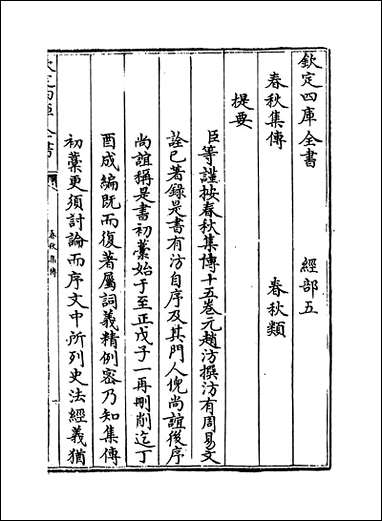 欽定四庫全書 經部五
春秋集傳 春秋類
提要
臣等謹按春秋集傳十五卷元趙汸撰汸有周易文
詮已著錄是書有汸自序及其門人倪尚誼後序
尚誼稱是書初藁始于至正戊子一再刪削迄丁
酉成編既而復著屬詞義精例密乃知集傳
初藁更須討論而序文中所列史法經義猶
欽定四庫全書
春秋集傳